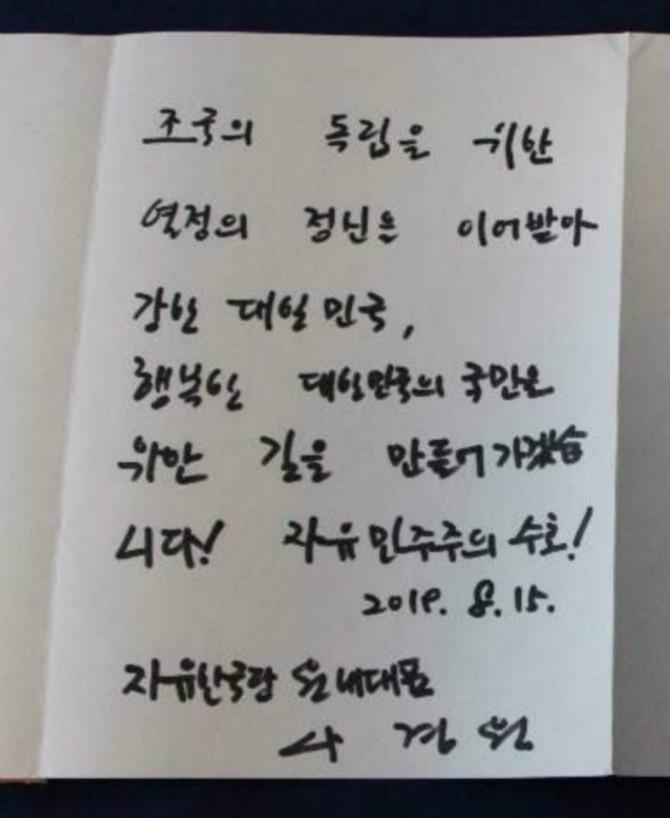 조국의 독립을 위한
열정의 정신을 이어받아
강한 대한민국,
행복한 대한민국의 국민을
위한 길을 만들어가겠습
니다! 자유민주주의 수호!
2019. 8. 15.
자유한국당 원내대표
나경원